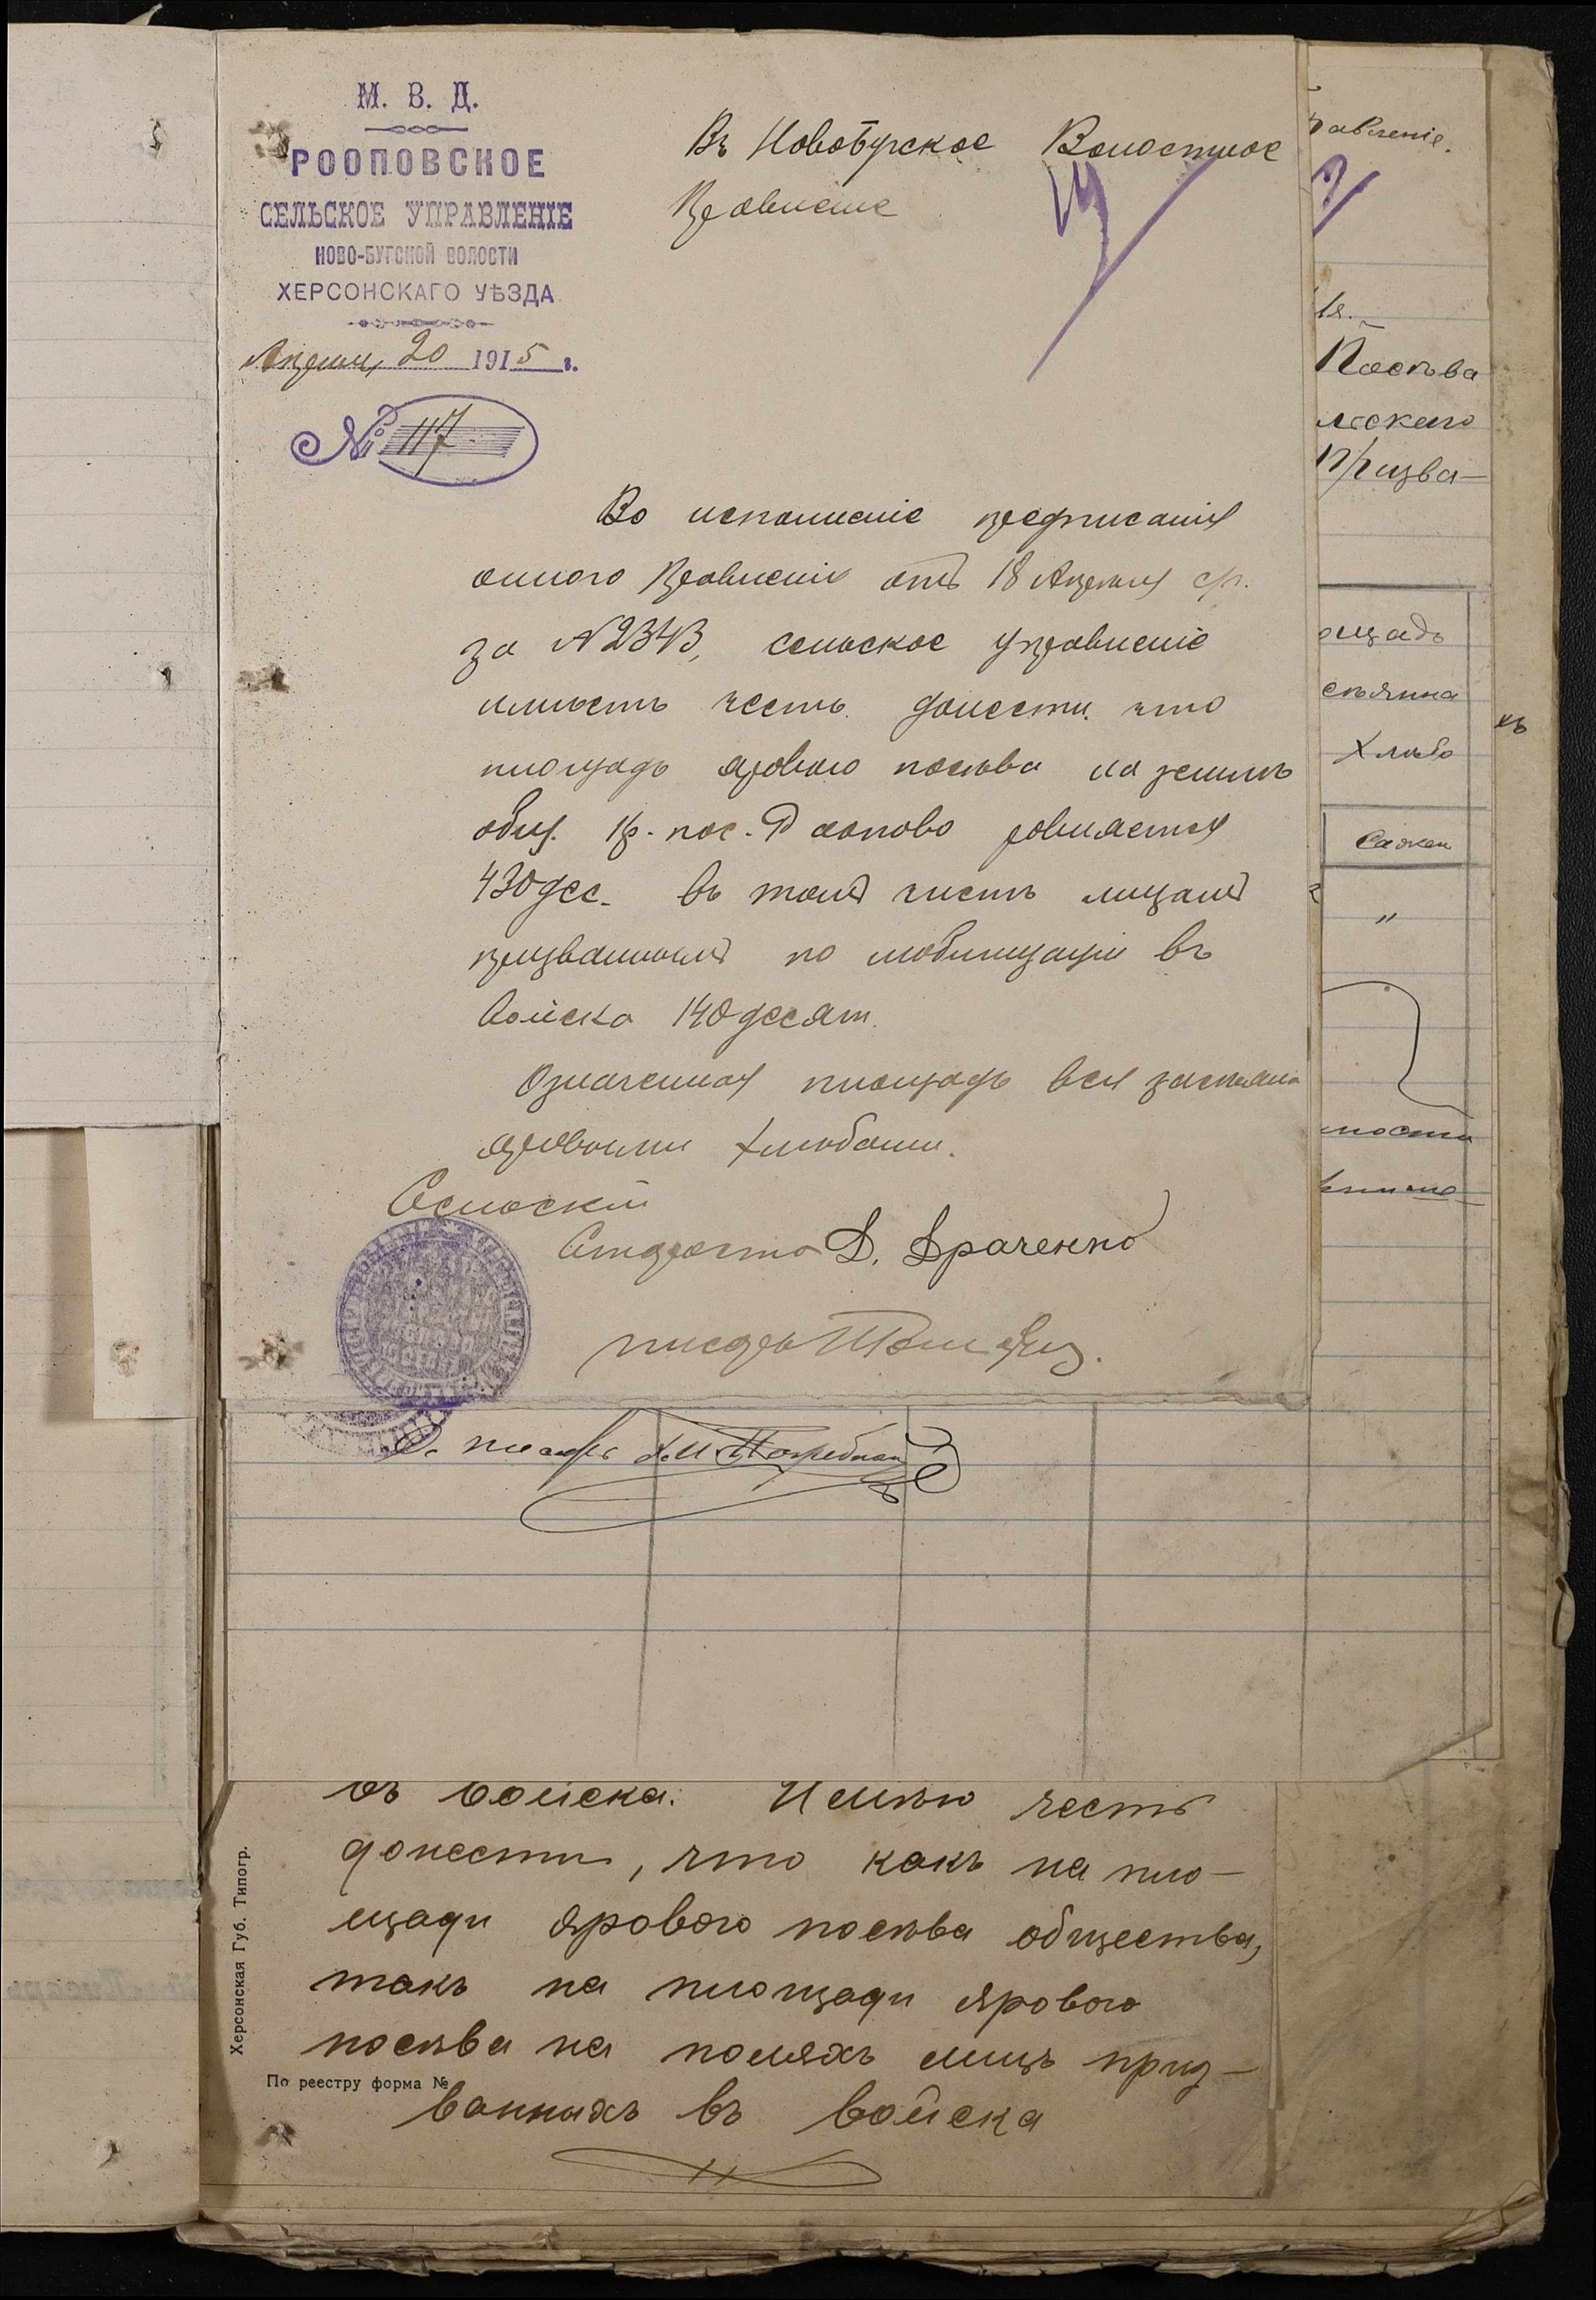 М. В. Д.
РООПОВСКОЕ
СЕЛЬСКОЕ УПРАВЛЕНІЕ
НОВО-БУГСКОЙ ВОЛОСТИ
ХЕРСОНСКАГО УѢЗДА
Апреля 20 1915 г.
№ 117
Въ Новобугское Волостное
Правленіе
Во исполненіе предписанія
оного Правленія отъ 18 Апреля с/г.
за № 2343, сельское управленіе
имѣетъ честь донести что
площадь ярового посѣва на землѣ
общ. кр. пос. Роопово ровняется
430 дес. въ томъ числѣ лицамъ
призваннымъ по мобилизаціи въ
войска 140 десят.
Означенная площадь вся засѣяна
яровыми хлѣбами.
Сельскій
Староста Д. Драченко
писарь
равленіе.
Посѣва
Призва-
ощадь
сѣянна
Хлѣбо
Сажен
"
къ
писарь
въ войска. Имѣю честь
донести, что какъ на пло-
щади ярового посѣва общества,
такъ на площади ярового
посѣва на поляхъ лицъ приз-
ванныхъ въ войска
Херсонская Губ. Типогр.
По реестру форма №